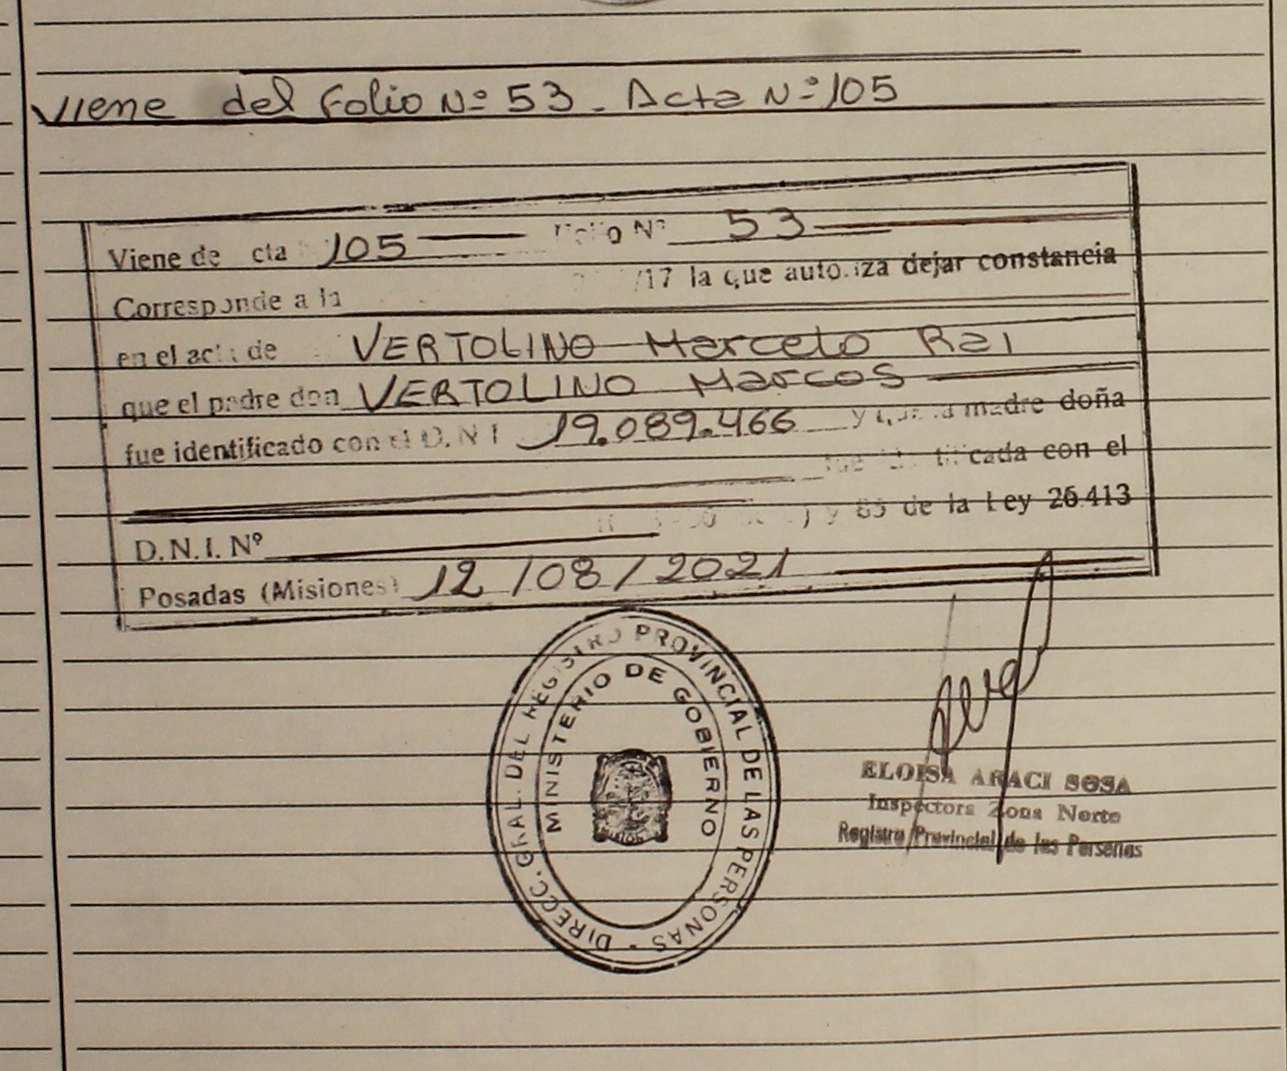 Viene del Folio Nº 53 - Acta Nº 105
Viene de cta 105 Folio Nº 53
Corresponde a la /17 la que autoriza dejar constancia
en el acta de VERTOLINO Marcelo
que el padre don VERTOLINO Marcos
fue identificado con el D.N.I 19.089.466 y que la madre doña
cada con el
y 85 de la Ley 26.413
D.N.I. Nº
Posadas (Misiones) 12/08/2021
DIRECC. GRAL. DEL REGISTRO PROVINCIAL DE LAS PERSONAS -
MINISTERIO DE GOBIERNO
ELOISA ARACI SOSA
Inspectora Zona Norte
Registro Provincial de las Personas